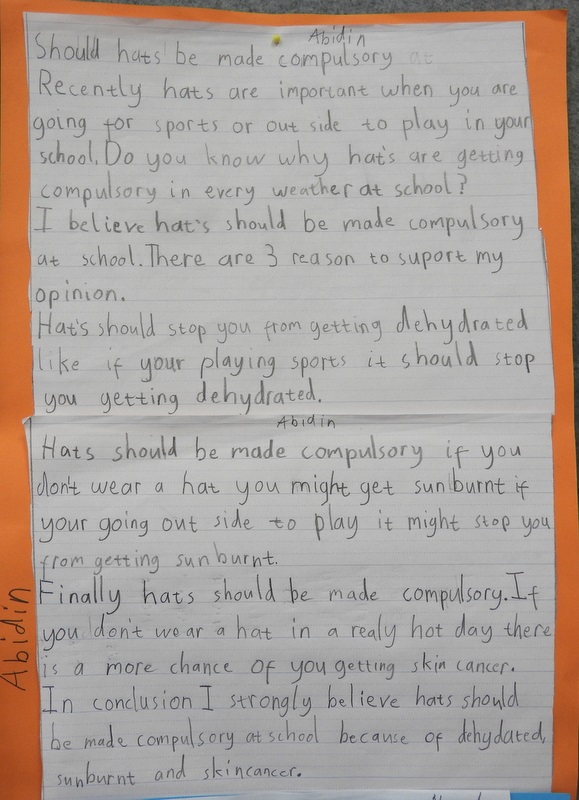 Abidin
Should hats be made compulsory at
Recently hats are important when you are
going for sports or out side to play in your
school. Do you know why hat's are getting
compulsory in every weather at school?
I believe hat's should be made compulsory
at school. There are 3 reason to suport my
opinion.
Hat's should stop you from getting dehydrated
like if your playing sports it should stop
you getting dehydrated.
Abidin
Hats should be made compulsory if you
don't wear a hat you might get sunburnt if
your going out side to play it might stop you
from getting sunburnt.
Finally hats should be made compulsory. If
you don't wear a hat in a realy hot day there
is a more chance of you getting skin cancer.
In conclusion I strongly believe hats should
be made compulsory at school because of dehydated,
sunburnt and skincancer.
Abidin